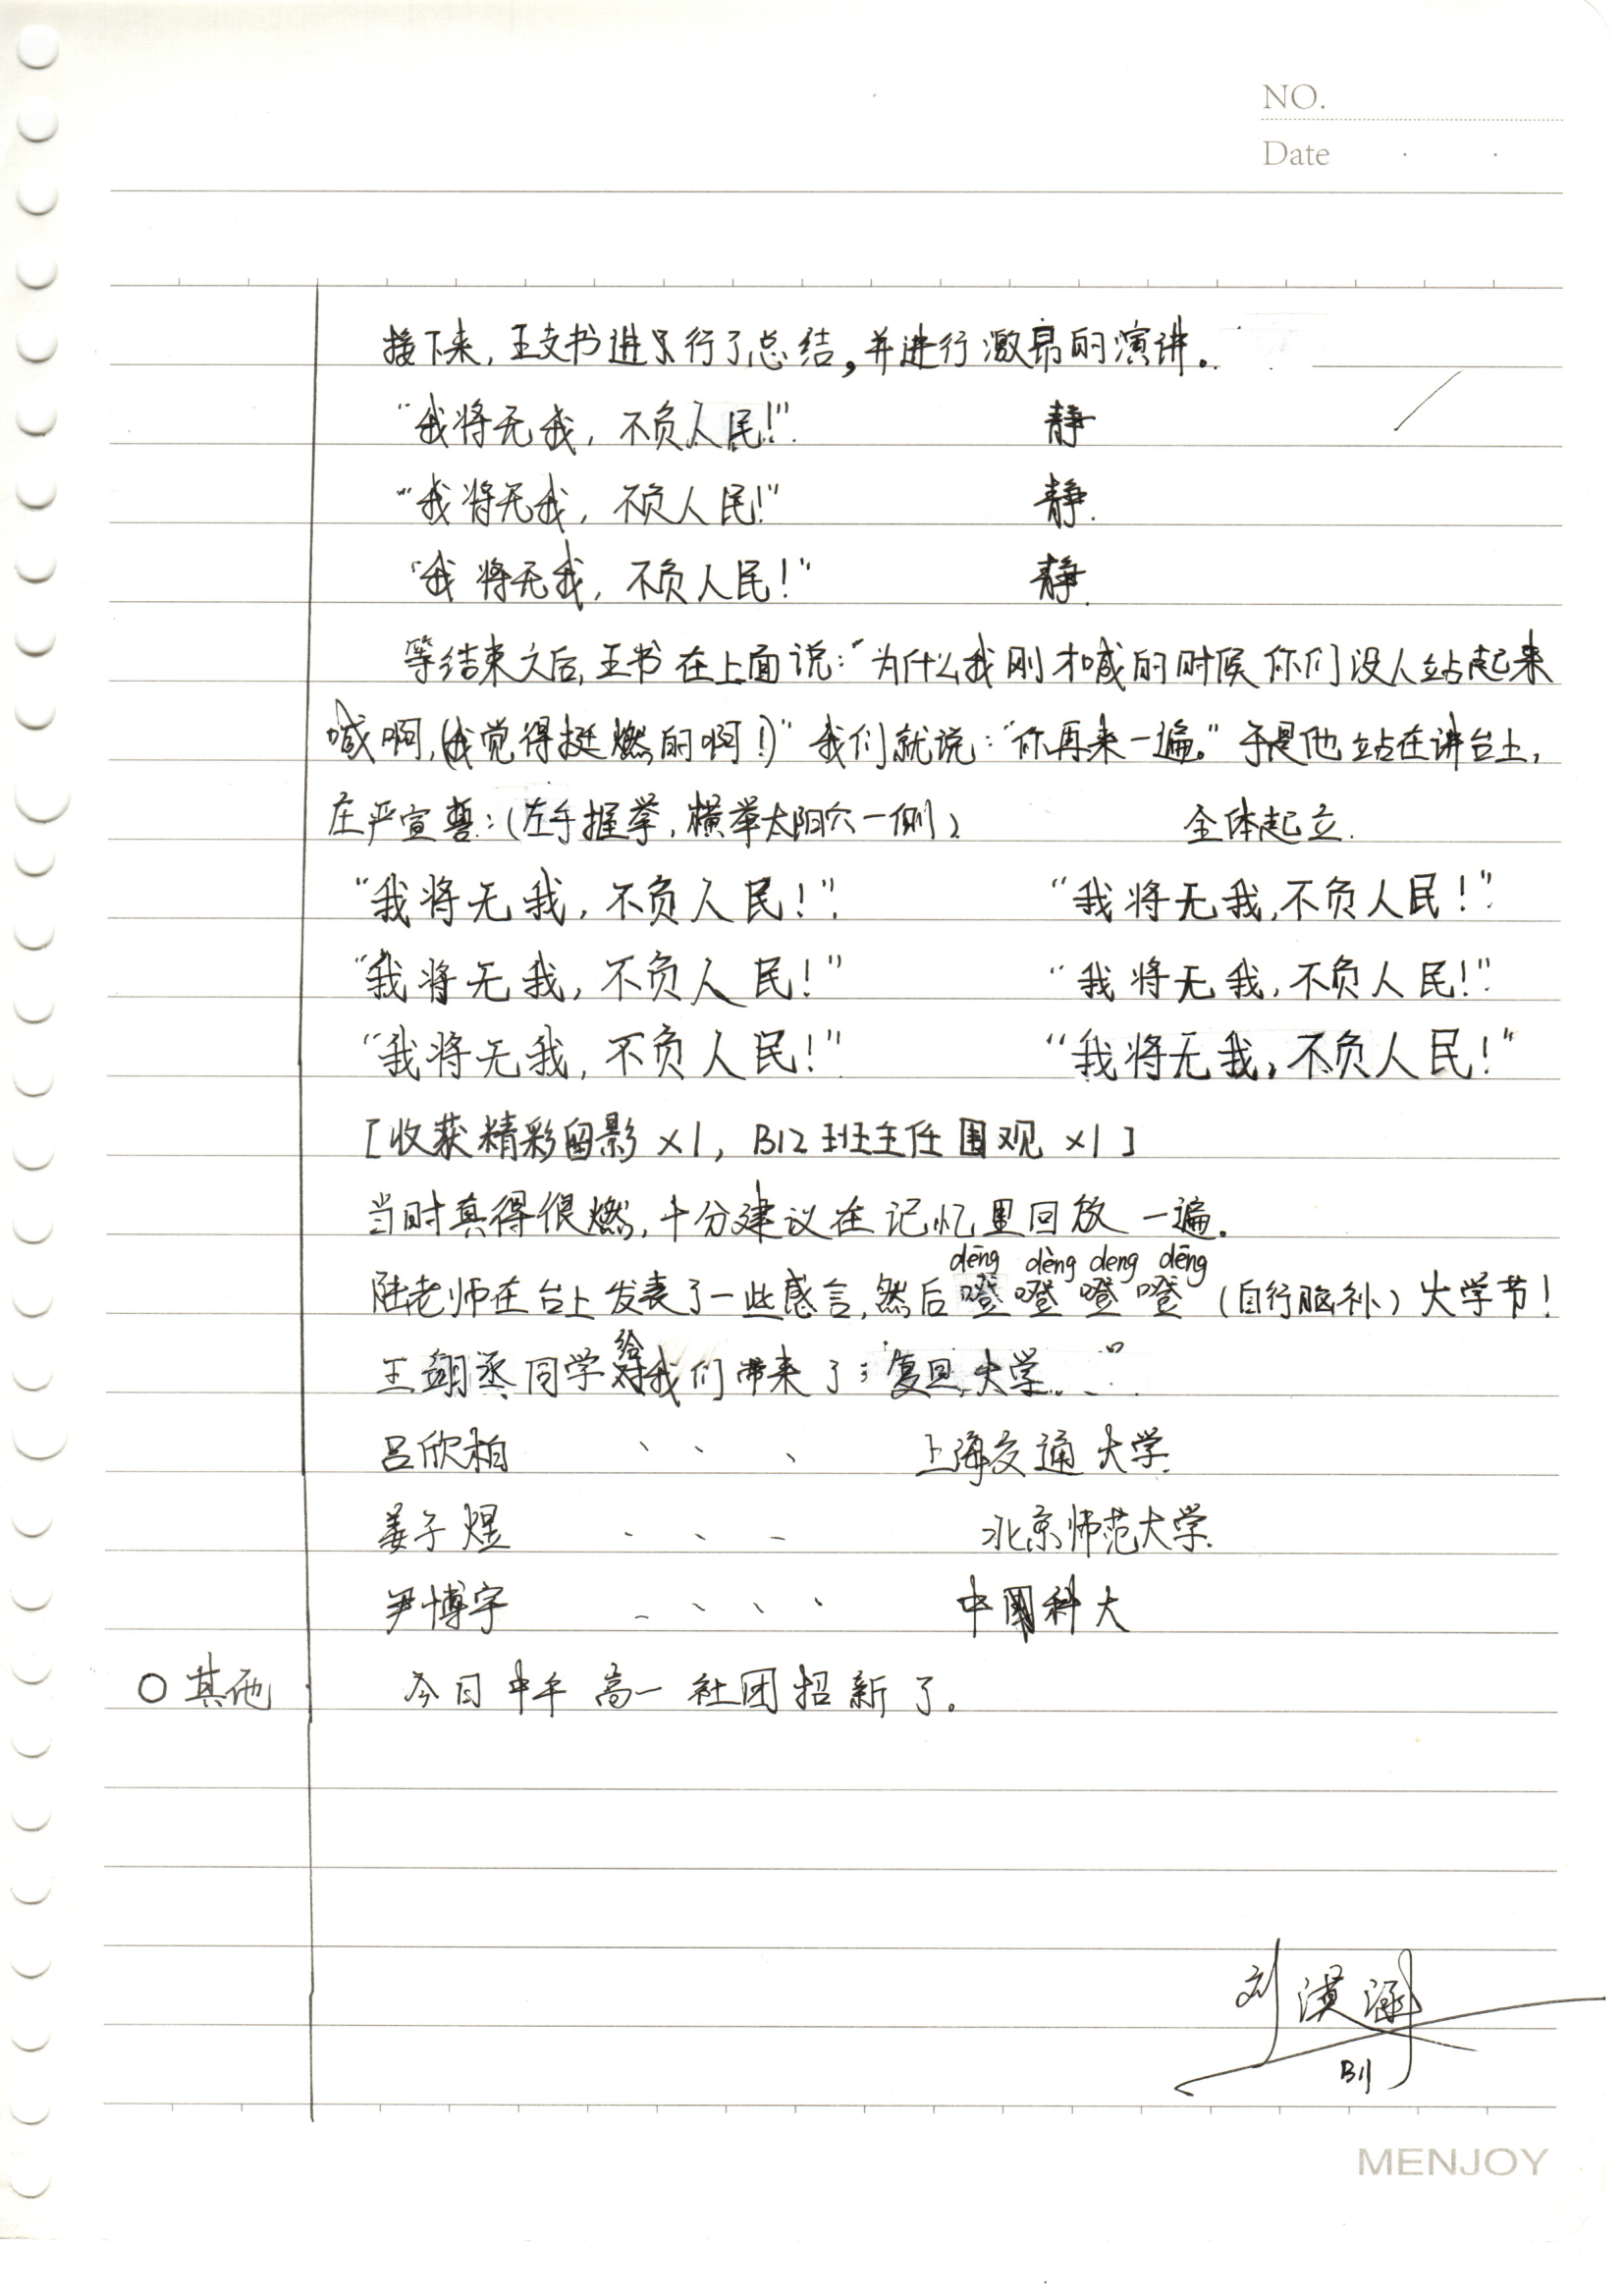 NO.
Date
接下来，王支书进行了总结，并进行激昂的演讲。
“我将无我，不负人民！” 静
“我将无我，不负人民！” 静.
“我将无我，不负人民！” 静.
等结束之后，王书在上面说：“为什么我刚才喊的时候你们没人站起来
喊啊，(我觉得挺燃的啊！)” 我们就说：“你再来一遍。” 于是他站在讲台上，
庄严宣誓：（左手握拳，横举太阳穴一侧） 全体起立.
“我将无我，不负人民！” “我将无我，不负人民！”
“我将无我，不负人民！” “我将无我，不负人民！”
“我将无我，不负人民！” “我将无我，不负人民！”
[收获精彩留影 x1，B12 班主任围观 x1]
当时真得很燃，十分建议在记忆里回放一遍.
dēng dèng deng dēng
陆老师在台上发表了一些感言，然后噔噔噔噔（自行脑补）大学节！
王翊丞同学给我们带来了：“复旦大学...”
吕欣柏 、、、 上海交通大学.
姜子煜 . . . 北京师范大学.
尹博宇 . . . . 中国科大
○ 其他 今日中午高一社团招新了。
刘漠涵
B11
MENJOY